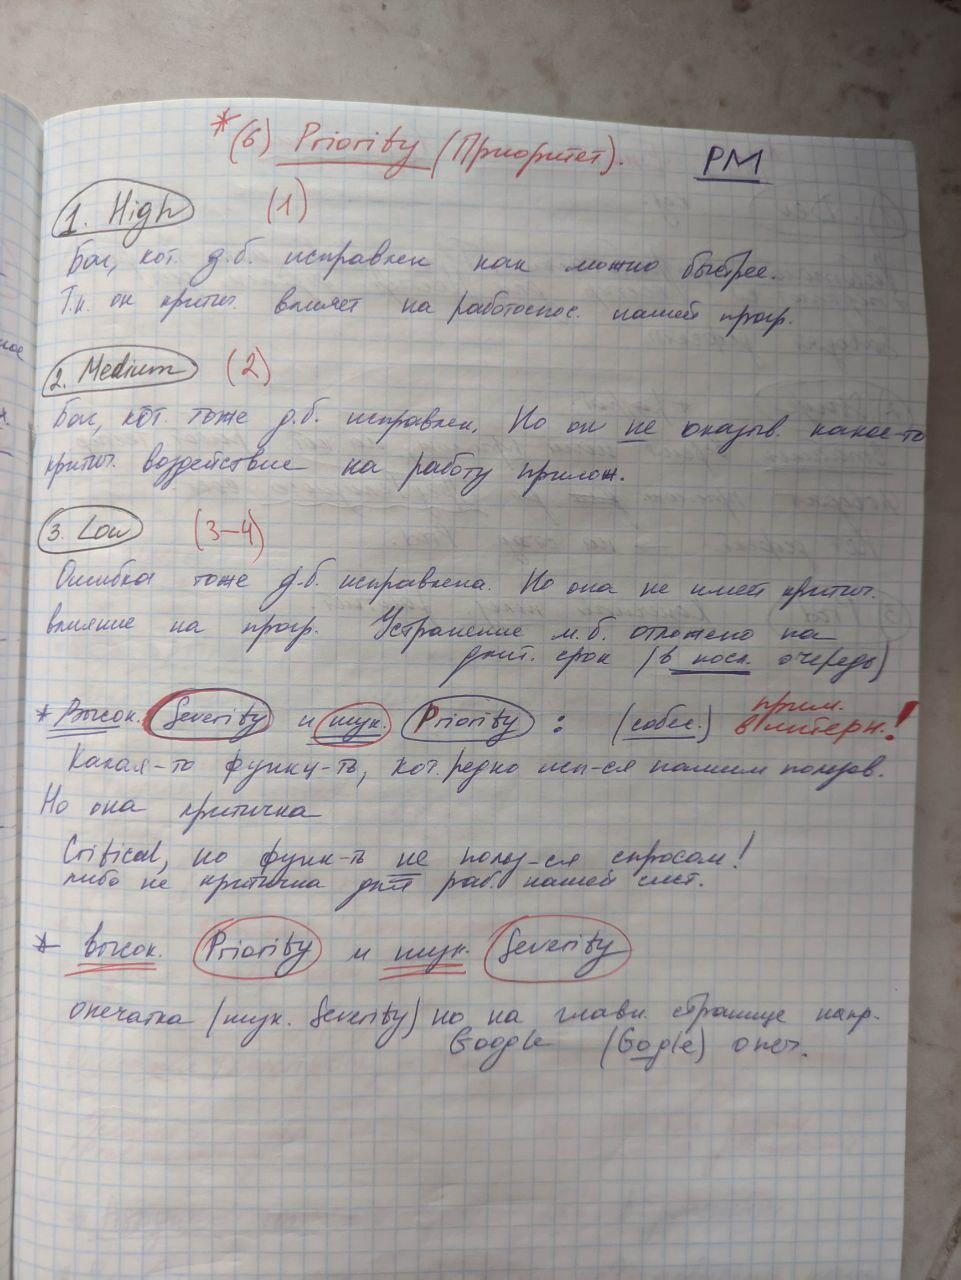 * (6) Priority (Приоритет). PM
1. High (1)
Баг, кот. д.б. исправлен как можно быстрее.
Т.к. он критич. влияет на работоспос. нашей прогр.
2. Medium (2)
Баг, кот тоже д.б. исправлен. Но он не оказыв. какое-то
критич. воздействие на работу прилож.
3. Low (3-4)
Ошибка тоже д.б. исправлена. Но она не имеет критич.
влияние на прогр. Устранение м.б. отложено на
длит. срок (в посл. очередь)
* Высок. Severity и низк. Priority : (собес.) прим. в интерн.!
Какая-то функц-ть, кот. редко исп-ся нашим пользов.
Но она критична
Critical, но функ-ть не польз-ся спросом!
либо не критична для раб. нашей сист.
* высок. Priority и низк. Severity
опечатка (низк. Severity) но на главн. странице напр.
Google (Gogle) опеч.